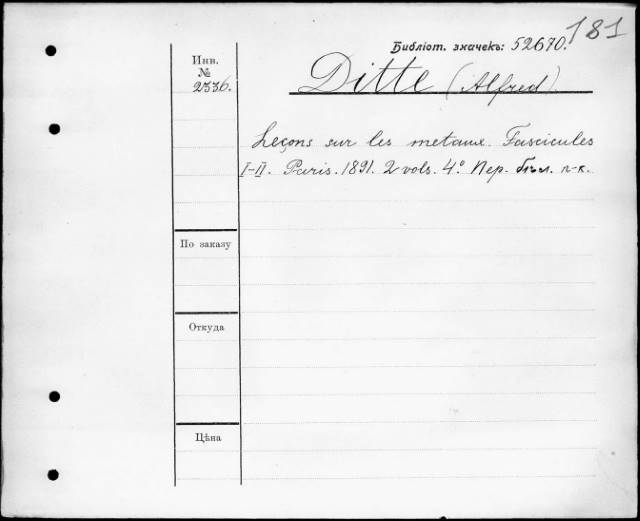 181
Библіот. значекъ: 52670.
Инв.
№
2336.
Ditte (Alfred)
Leçons sur les metaux. Fascicules
I-II. Paris. 1891. 2 vols. 4° Пер. бѣл. п-к.
По заказу
Откуда
Цѣна